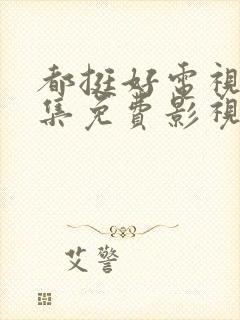 都挺好電視
集免費影視
艾警